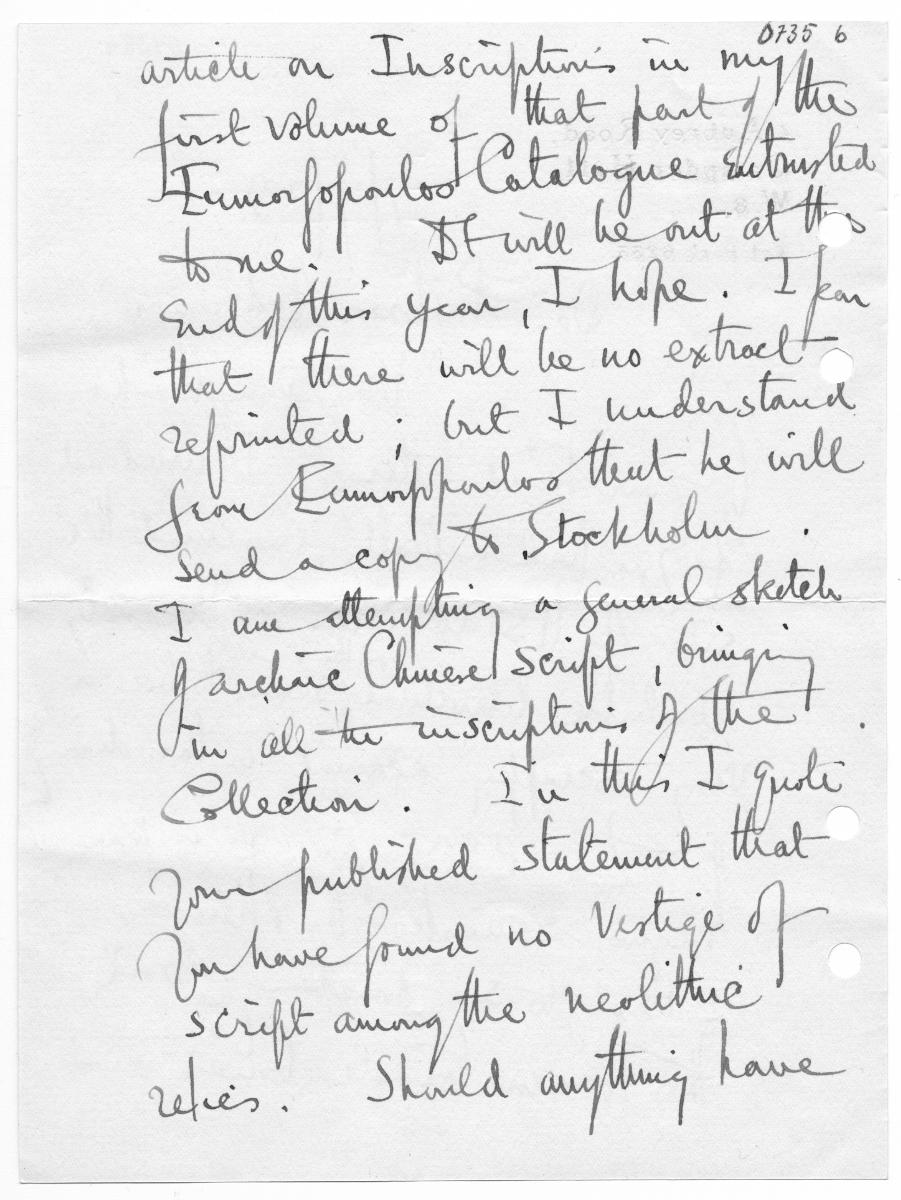 0735 6
article on Inscriptions in my
first volume of that part of the
Eumorfopoulos Catalogue entrusted
to me. It will be out at the
end of this year, I hope. I fear
that there will be no extract
reprinted; but I understand
from Eumorfopoulos that he will
send a copy to Stockholm.
I am attempting a general sketch
of archaic Chinese script, bringing
in all the inscriptions of the
Collection. In this I quote
your published statement that
you have found no vestige of
script among the neolithic
relics. Should anything have